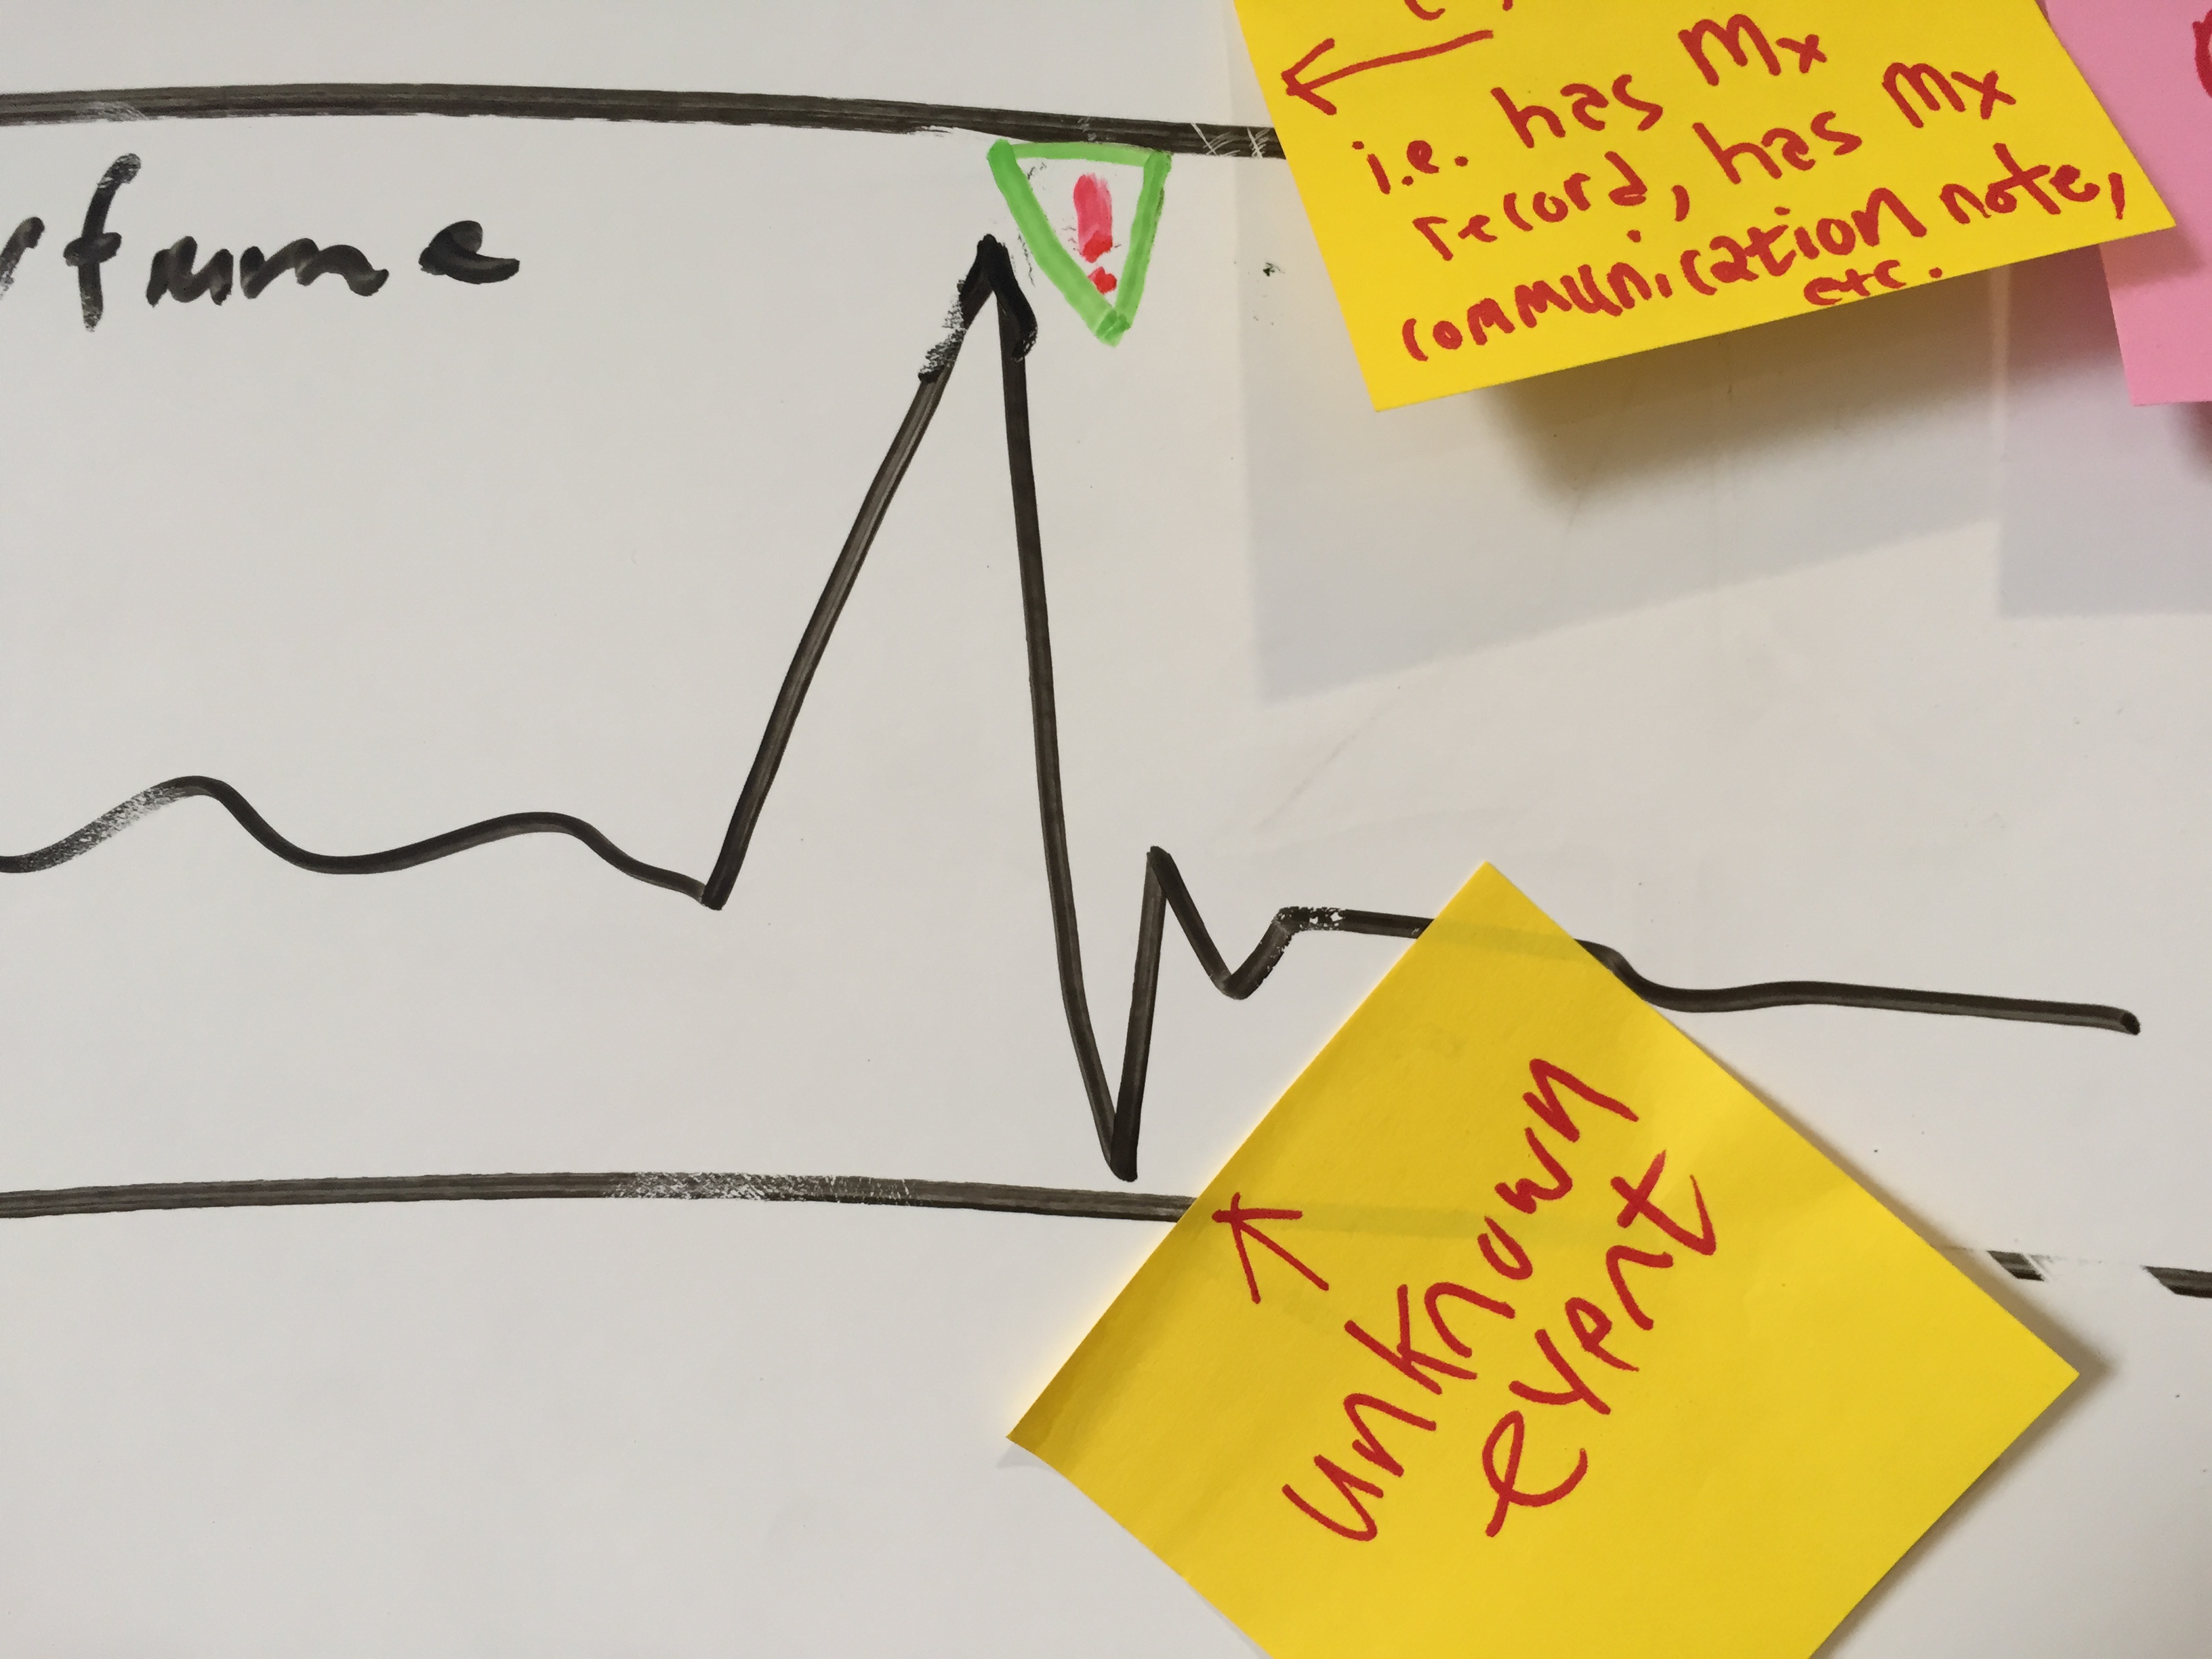 i.e. has Mx
record, has Mx
communication note,
etc.
!
unknown
event